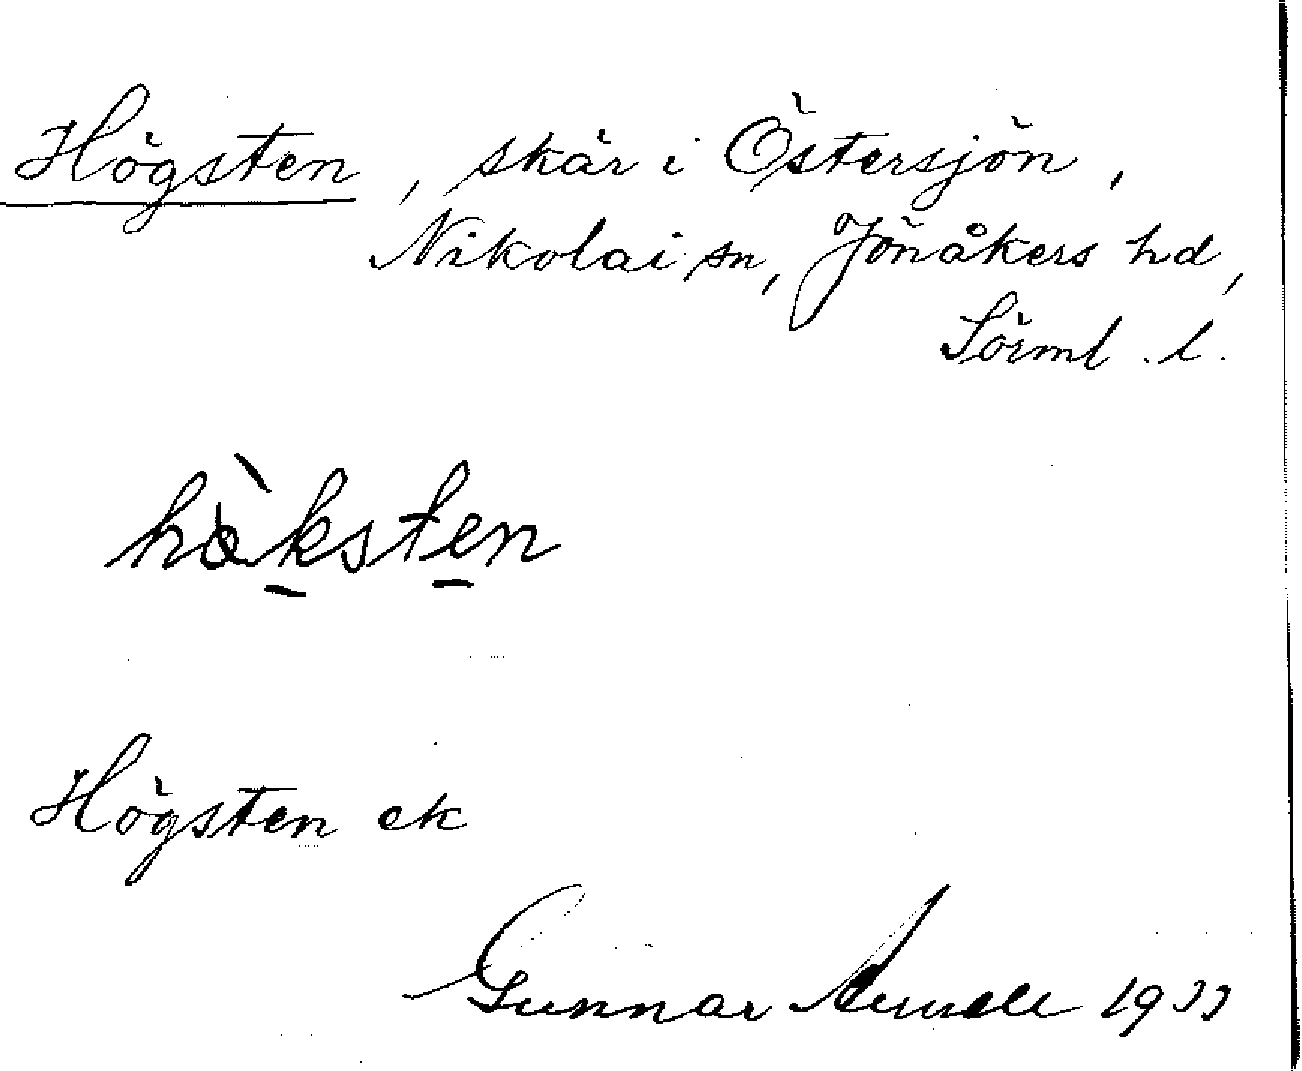 Högsten, skär i Östersjön,
Nikolai sn, Jönåkers hd,
Sörml. l.
hàksten
Högsten ek
Gunnar 19